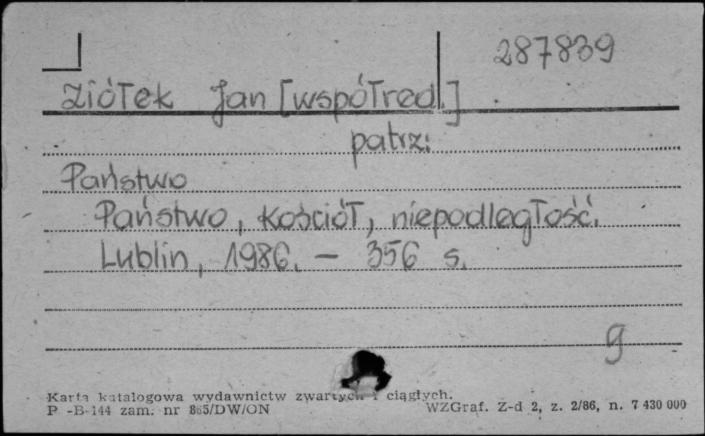 287839
Ziółek Jan [współred.]
patrz:
Państwo
Państwo, Kościół, niepodległość.
Lublin, 1986. — 356 s.
g
Karta katalogowa wydawnictw zwartych i ciągłych.
P -B-144 zam. nr 865/DW/ON
WZGraf. Z-d 2, z. 2/86, n. 7 430 000